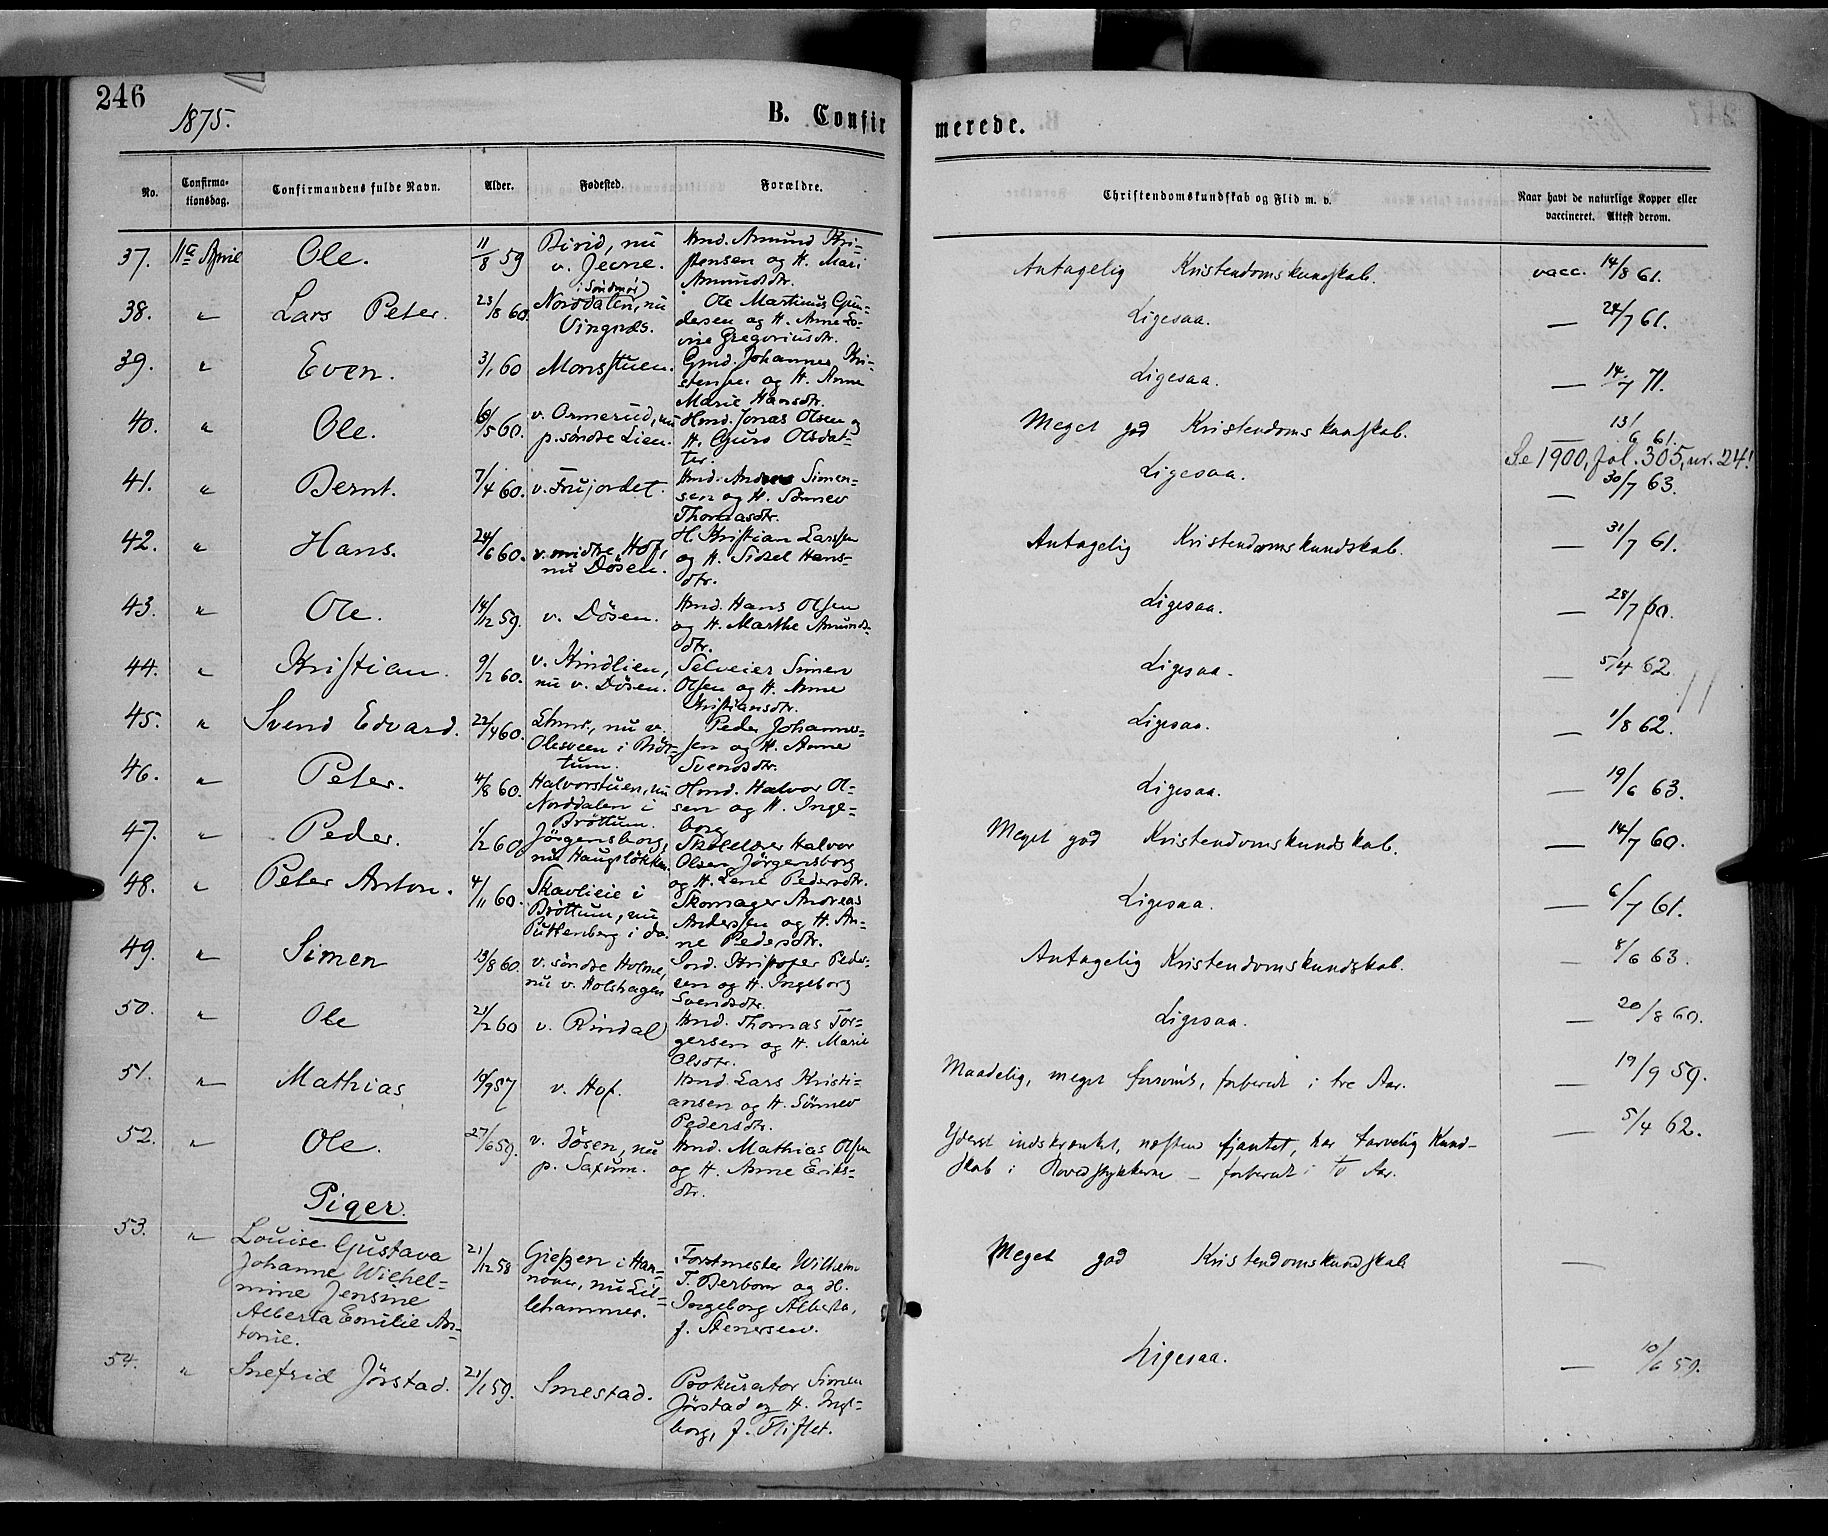 246
1875.
B. Confirmerede.
No.
Confirmationsdag.
Confirmandens fulde Navn.
Alder.
Fødested.
Forældre.
Christendomskundskab og Flid m. v.
Naar havt de naturlige Kopper eller
vaccineret. Attest derom.
37. 11te April Ole. 11/8 59 Birid, nu
v. Jevne.
Hmd. Amund Kri-
stensen og H. Mari
Amundsdtr.
Antagelig Kristendomskundskab. vacc. 14/8 61.
38. " Lars Peter. 23/8 60. (i Søndmør)
Norddalen, nu
Vingnæs.
Ole Martinus Gun-
dersen og H. Anne Lo-
vise Gregoriusdtr.
Ligesaa. — 24/7 61.
39. " Even. 3/1 60 Monsstuen.
Gmd. Johannes Kri-
stensen og H. Anne
Marie Hansdtr.
Ligesaa. — 14/7 71.
40. " Ole. 6/5 60. v. Ormerud, nu
p. søndre Lien.
Hmd. Jonas Olsen og
H. Guro Olsdat-
ter.
Meget god Kristendomskundskab. — 13/6 61.
Se 1900, fol. 305, nr. 24!
41. " Bernt. 7/4 60. v. Frujordet.
Hmd. Anders Simen-
sen og H. Sønnev
Thomasdtr.
Ligesaa. — 30/7 63.
42. " Hans. 24/6 60. v. midtre Hof,
nu Døsen.
H. Kristian Larssen
og H. Sidsel Hans-
dtr.
Antagelig Kristendomskundskab. — 31/7 61.
43. " Ole. 14/12 59. v. Døsen.
Hmd. Hans Olsen
og H. Marthe Amunds-
dtr.
Ligesaa. — 28/7 60.
44. " Kristian. 9/2 60. v. Kindlien,
nu v. Døsen.
Selveier Simen
Olsen og H. Anne
Kristiansdtr.
Ligesaa. — 5/4 62
45. " Svend Edvard. 22/4 60. nu v.
Olesveen i Brøt-
tum.
Peder Johannes-
sen og H. Anne
Svendsdtr.
Ligesaa. — 1/8 62.
46. " Peter. 4/8 60. Halvorstuen, nu
Norddalen i
Brøttum.
Hmd. Halvor Ol-
sen og H. Inge-
borg
Ligesaa. — 19/6 63.
47. " Peder. 1/2 60 Jørgensborg,
nu Haugsløkken.
Skolelærer Halvor
Olsen Jørgensborg
og H. Lene Pedersdtr.
Meget god Kristendomskundskab. — 14/7 60.
48. " Peter Anton. 4/11 60. Skavlieie i
Brøttum, nu
Puttenberg i do.
Skomager Andreas
Anderssen og H. An-
ne Pedersdtr.
Ligesaa. — 6/7 61.
49. " Simen 13/8 60. v. søndre Holme,
nu v. Holshagen
Ind. Kristofer Peder-
sen og H. Ingeborg
Svendsdtr.
Antagelig Kristendomskundskab. — 8/6 63.
50. " Ole 21/2 60 v. Rindal
Hmd. Thomas Tor-
gersen og H. Marie
Olsdtr.
Ligesaa. — 20/8 60.
51. " Mathias 10/9 57 v. Hof.
Hmd. Lars Kristi-
ansen og H. Sønnev
Pedersdtr.
Maadelig, meget forsømt, forberedt i tre Aar. — 19/9 59.
52. " Ole. 27/6 59. v. Døsen, nu
p. Saxum.
Hmd. Mathias Olsen
og H. Anne Eriks-
dtr.
Yderst indskrænket, næsten fjantet, har tarvelig Kund-
skab i Hovedstykkerne — forberedt i to Aar. — 5/4 62.
Piger.
53. " Louise Gustava
Johanne Wilhel-
mine Jensine
Alberta Emilie An-
tonie.
21/12 58 Gießen i Han-
nover, nu Lil-
lehammer.
Forstmester Wilhelm
T. Berbom og H.
Ingeborg Alberta,
f. Stenersen.
Meget god Kristendomskundskab —
54. " Snefrid Jørstad. 21/1 59. Smestad.
Prokurator Simen
Jørstad og H. Inge-
borg, f. Fliflet.
Ligesaa. — 10/6 59.